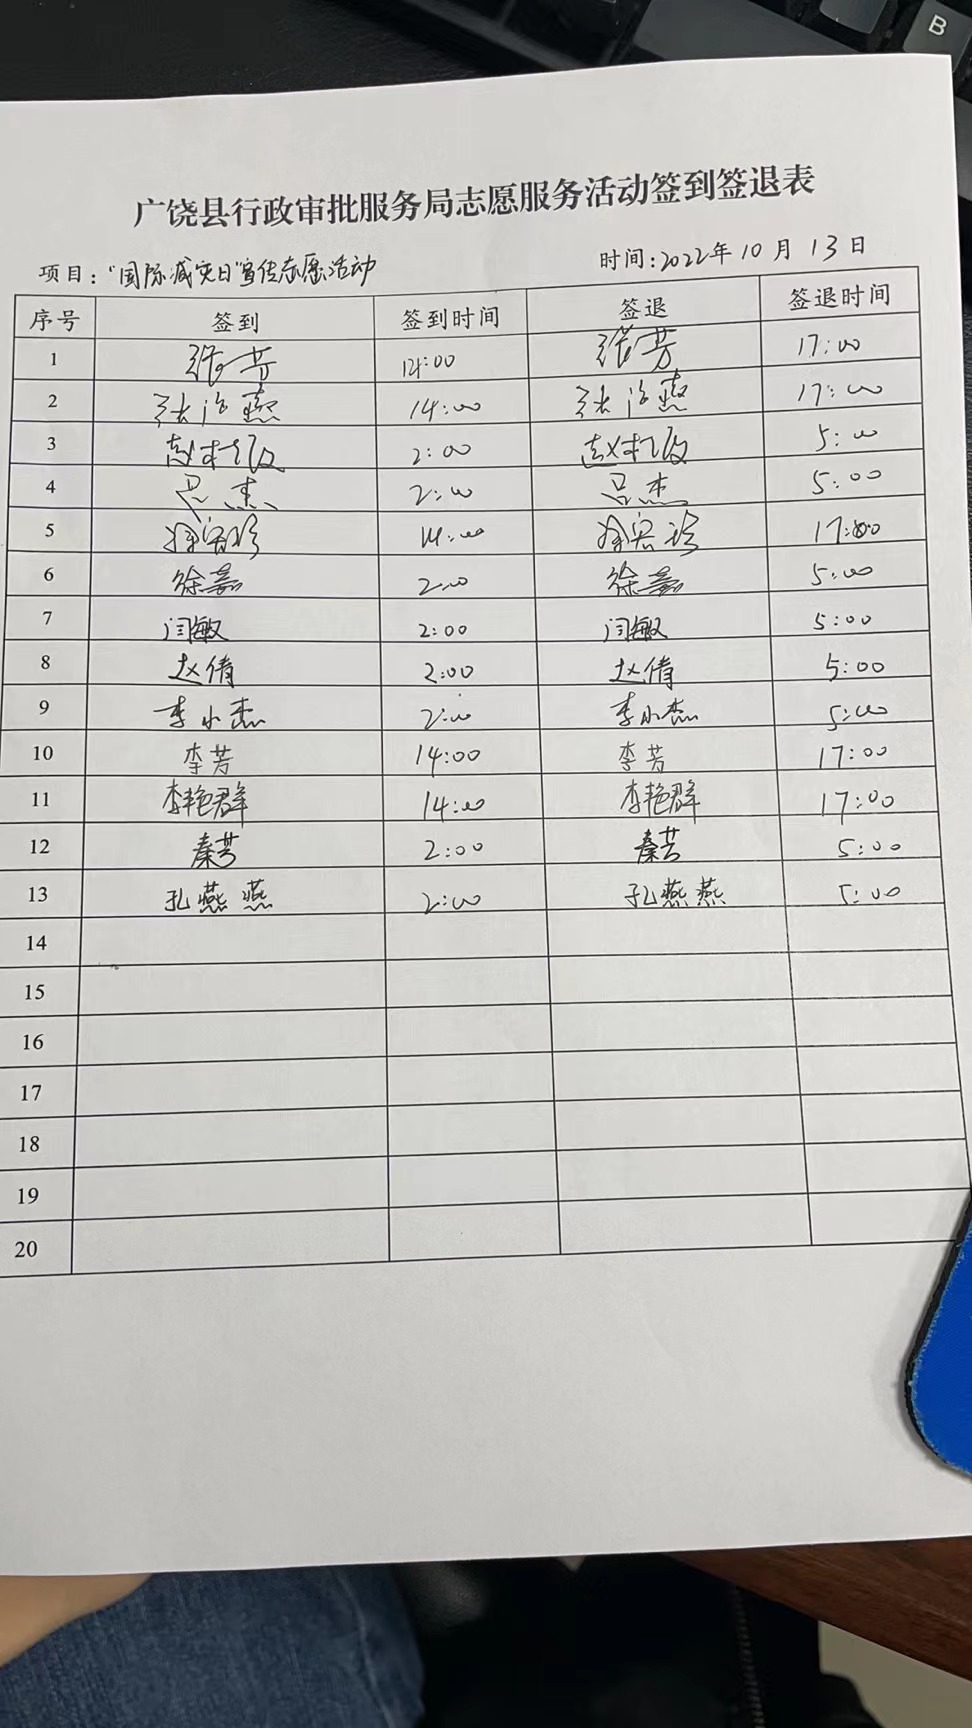 B
广饶县行政审批服务局志愿服务活动签到签退表
项目：“国际减灾日”宣传志愿活动 时间：2022年10月13日
序号 签到 签到时间 签退 签退时间
1 张芳 14:00 张芳 17:00
2 张 燕 14:00 张 燕 17:00
3 赵 2:00 赵 5:00
4 吕杰 2:00 吕杰 5:00
5 14:00 17:00
6 徐嘉 2:00 徐嘉 5:00
7 闫敏 2:00 闫敏 5:00
8 赵倩 2:00 赵倩 5:00
9 李小杰 2:00 李小杰 5:00
10 李芳 14:00 李芳 17:00
11 李艳群 14:00 李艳群 17:00
12 秦芳 2:00 秦芳 5:00
13 孔燕燕 2:00 孔燕燕 5:00
14
15
16
17
18
19
20